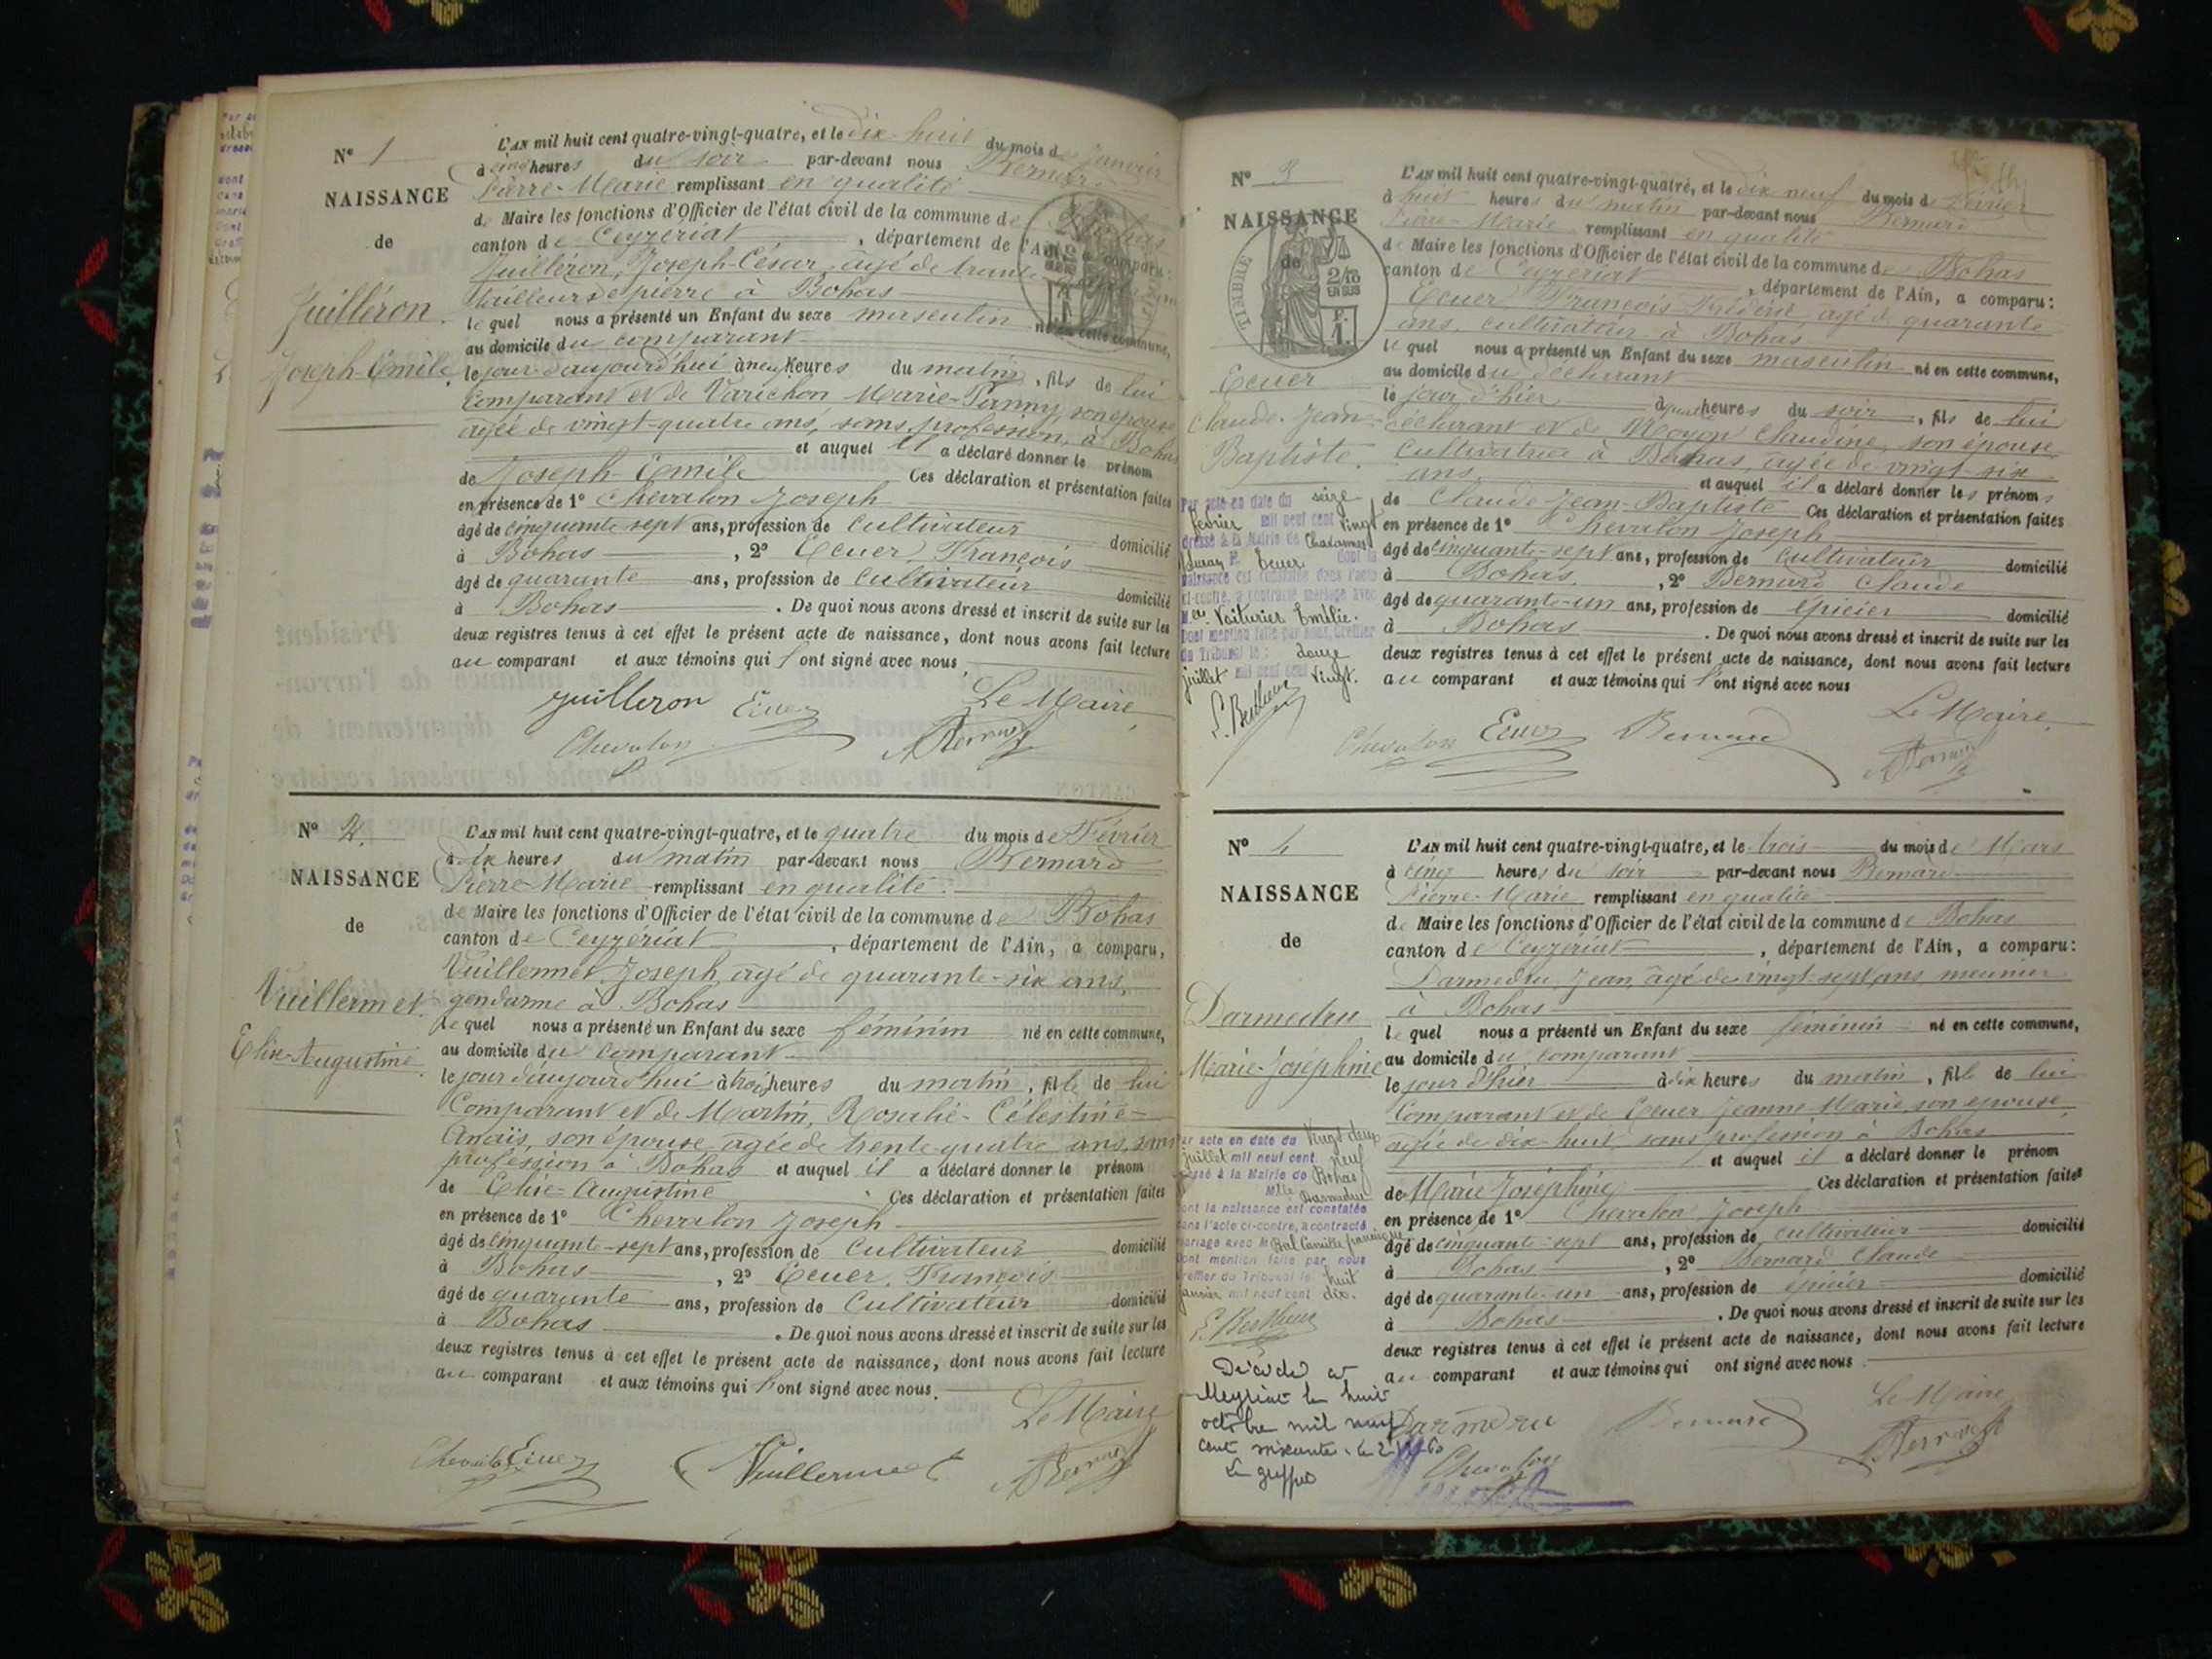 N° 1
NAISSANCE
de
Juilléron
Joseph-Emile
L'AN mil huit cent quatre-vingt-quatre, et le dix-huit du mois de Janvier
à cinq heures du soir par-devant nous Bernard
Pierre-Marie remplissant en qualité
de Maire les fonctions d'Officier de l'état civil de la commune de Bohas
canton de Ceyzériat, département de l'Ain, a comparu:
Juilléron, Joseph-César, agé de trente
tailleur de pierre à Bohas
lequel nous a présenté un Enfant du sexe masculin né en cette commune,
au domicile du comparant
le jour d'aujourd'hui à neuf heures du matin, fils de lui
Comparant et de Varichon Marie-Fanny, son épouse
agée de vingt-quatre ans, sans profession, à Bohas
et auquel il a déclaré donner le prénom
de Joseph-Emile Ces déclaration et présentation faites
en présence de 1° Chevalon Joseph
âgé de cinquante-sept ans, profession de Cultivateur domicilié
à Bohas, 2° Ecuer, François
âgé de quarante ans, profession de Cultivateur domicilié
à Bohas. De quoi nous avons dressé et inscrit de suite sur les
deux registres tenus à cet effet le présent acte de naissance, dont nous avons fait lecture
au comparant et aux témoins qui l'ont signé avec nous
Juilleron Ecuer Le Maire
Chevalon Bernard
N° 2.
NAISSANCE
de
Vuillermet
Elise-Augustine.
L'AN mil huit cent quatre-vingt-quatre, et le quatre du mois de Février
à dix heures du matin par-devant nous Bernard
Pierre-Marie remplissant en qualité
de Maire les fonctions d'Officier de l'état civil de la commune de Bohas
canton de Ceyzériat, département de l'Ain, a comparu,
Vuillermet Joseph, âgé de quarante-six ans,
gendarme à Bohas
lequel nous a présenté un Enfant du sexe féminin né en cette commune,
au domicile du comparant
le jour d'aujourd'hui à trois heures du matin, fille de lui
Comparant et de Martin, Rosalie-Célestine-
Anaïs, son épouse agée de trente quatre ans, sans
profession à Bohas et auquel il a déclaré donner le prénom
de Elise-Augustine Ces déclaration et présentation faites
en présence de 1° Chevalon Joseph
âgé de cinquante-sept ans, profession de Cultivateur domicilié
à Bohas, 2° Ecuer, François
âgé de quarante ans, profession de Cultivateur domicilié
à Bohas. De quoi nous avons dressé et inscrit de suite sur les
deux registres tenus à cet effet le présent acte de naissance, dont nous avons fait lecture
au comparant et aux témoins qui l'ont signé avec nous.
Le Maire
Chevalon Ecuer Vuillermet Bernard
N° 3
NAISSANCE
de
TIMBRE
2/10
EN SUS
F.
1.
Ecuer
Claude-Jean-
Baptiste.
Par acte en date du seize
février mil neuf cent vingt
dressé à la Mairie de Chavannes
s/Suran M. Ecuer dont la
naissance est constatée dans l'acte
ci-contre, a contracté mariage avec
Voiturier Emélie.
Dont mention faite par nous, Greffier
du Tribunal le: douze
juillet mil neuf cent vingt.
L'AN mil huit cent quatre-vingt-quatre, et le dix neuf du mois de Février
à huit heures du matin par-devant nous Bernard
Pierre-Marie remplissant en qualité
de Maire les fonctions d'Officier de l'état civil de la commune de Bohas
canton de Ceyzériat, département de l'Ain, a comparu:
Ecuer François Frédéric agé de quarante
ans, cultivateur à Bohas
lequel nous a présenté un Enfant du sexe masculin né en cette commune,
au domicile du déclarant
le jour d'hier à quatre heures du soir, fils de lui
déclarant et de Moyon Claudine, son épouse
Cultivatrice à Bohas, agée de vingt-six
ans et auquel il a déclaré donner les prénoms
de Claude Jean-Baptiste Ces déclaration et présentation faites
en présence de 1° Chevalon Joseph
âgé de cinquante-sept ans, profession de Cultivateur domicilié
à Bohas, 2° Bernard Claude
âgé de quarante-un ans, profession de épicier domicilié
à Bohas. De quoi nous avons dressé et inscrit de suite sur les
deux registres tenus à cet effet le présent acte de naissance, dont nous avons fait lecture
au comparant et aux témoins qui l'ont signé avec nous
Le Maire
Chevalon Ecuer Bernard Bernard
N° 4
NAISSANCE
de
Darmedru
Marie-Joséphine
Par acte en date du vingt deux
juillet mil neuf cent neuf
dressé à la Mairie de Bohas
Mlle Darmedru
dont la naissance est constatée
dans l'acte ci-contre, a contracté
mariage avec M. Bal Camille françois
Dont mention faite par nous
Greffier du Tribunal le huit
janvier mil neuf cent dix.
Décédée à
Meyriat le huit
octobre mil neuf
cent soixante.
Le greffier
L'AN mil huit cent quatre-vingt-quatre, et le trois du mois de Mars
à cinq heures du soir par-devant nous Bernard
Pierre-Marie remplissant en qualité
de Maire les fonctions d'Officier de l'état civil de la commune de Bohas
canton de Ceyzériat, département de l'Ain, a comparu:
Darmedru, Jean, âgé de vingt-sept ans, meunier
à Bohas
lequel nous a présenté un Enfant du sexe féminin né en cette commune,
au domicile du comparant
le jour d'hier à dix heures du matin, fille de lui
Comparant et de Ecuer Jeanne Marie, son épouse
agée de dix-huit, sans profession à Bohas
et auquel il a déclaré donner le prénom
de Marie Joséphine Ces déclaration et présentation faites
en présence de 1° Chevalon Joseph
âgé de cinquante-sept ans, profession de cultivateur domicilié
à Bohas, 2° Bernard Claude
âgé de quarante-un ans, profession de épicier domicilié
à Bohas. De quoi nous avons dressé et inscrit de suite sur les
deux registres tenus à cet effet le présent acte de naissance, dont nous avons fait lecture
au comparant et aux témoins qui ont signé avec nous
Le Maire
Darmedru Bernard Bernard
Chevalon